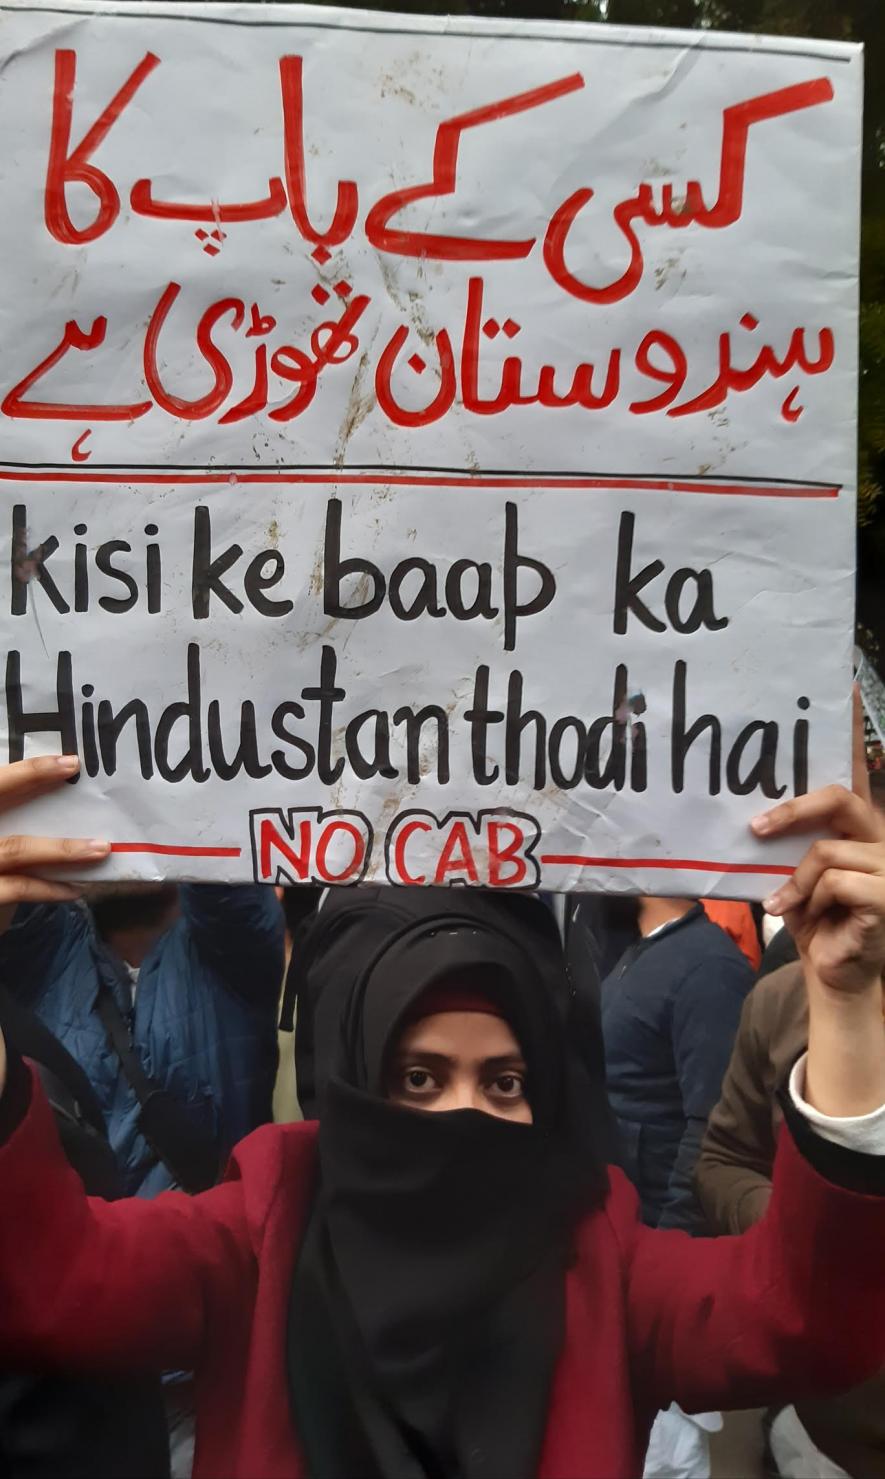 کسی کے باپ کا
ہندوستان تھوڑی ہے
kisi ke baap ka
Hindustan thodi hai
NO CAB